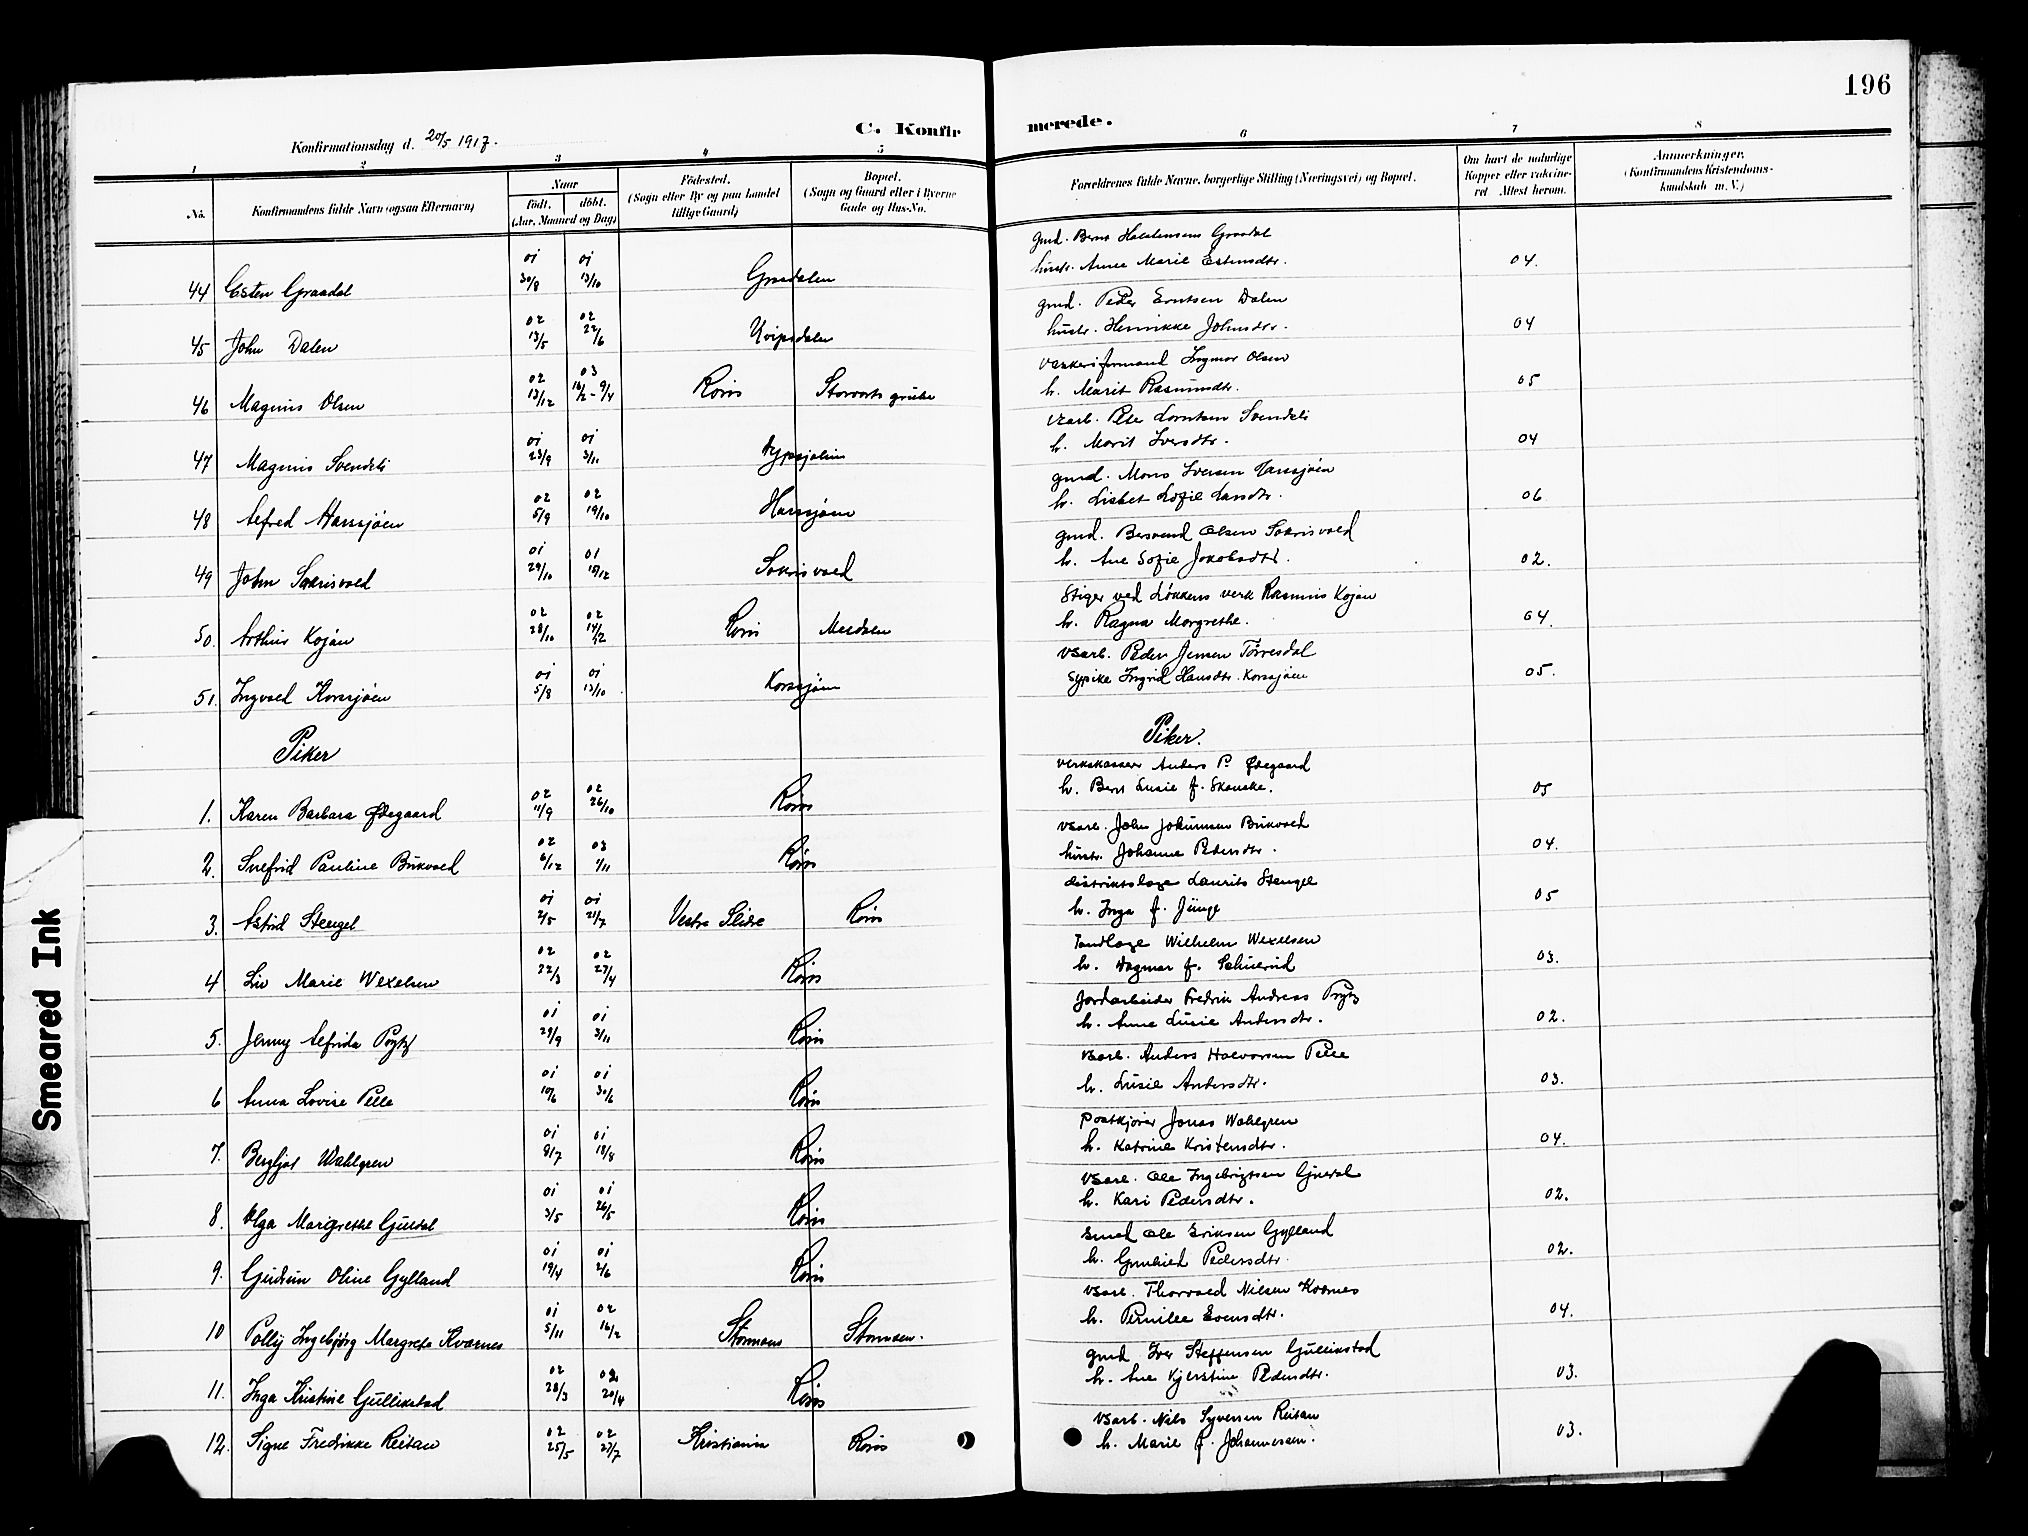 196
C. Konfirmerede.
Konfirmationsdag d. 20/5 1917.
1 2 3 4 5 6 7 8
No.
Konfirmandens fulde Navn (ogsaa Efternavn)
Naar
født. døbt.
(Aar, Maaned og Dag)
Fødested.
(Sogn eller By og paa Landet
tillige Gaard)
Bopæl.
(Sogn og Gaard eller i Byerne
Gade og Hus-No.
Forældrenes fulde Navne, borgerlige Stilling (Næringsvei) og Bopæl.
Om havt de naturlige
Kopper eller vaccine-
ret Attest herom.
Anmerkninger.
(Konfirmandens Kristendoms-
kundskab m. V.)
gmd. Bernt Graadal
44 Esten Graadal 01 30/8 01 13/10 Graadalen hustr. Anne Marie Estensdtr. 04.
gmd. Peder Erntsen Dalen
45 John Dalen 02 13/5 02 22/6 hustr. Henrikke Johnsdtr. 04
Ingmar Olsen
46 Magnus Olsen 02 13/12 03 16/2 - 9/4 Røros Storvarts grube h. Marit Rasmusdtr. 05
Varb. Peter Svendsli
47 Magnus Svendsli 01 23/9 01 3/11 h. Marit Iversdtr. 04
gmd. Mons Iversen Harsjøen
48 Alfred Harsjøen 02 5/9 02 19/10 Harsjøen h. Lisbet Sofie Larsdtr. 06
gmd. Bersvend Olsen Sakrisvold
49 John Sakrisvold 01 29/10 01 Sakrisvold h. Ane Sofie Jakobsdtr. 02.
Stiger ved Løkkens verk Rasmus Kojan
50. Arthur Kojan 02 28/10 02 14/12 Røros Meldalen h. Ragna Margrethe. 04.
Varb. Peder Jensen Tørresdal
51. Ingvald Korssjøen 01 5/8 01 13/10 Korssjøen sypike Ingrid Hansdtr. Korssjøen 05.
Piker Piker.
Verkskasserer Anders P. Ødegaard
1. Karen Barbara Ødegaard 02 11/9 02 26/10 Røros h. Berit Lusie f. Skanske. 05
Varb. John Bukvold
2. Snefrid Pauline Bukvold 02 6/12 03 1/11 Røros hustr. Johanne Pedersdtr. 04.
distriktslæge Laurits Stengel
3. Astrid Stengel 01 2/5 01 21/7 Vestre Slidre Røros h. Inga f. Jünge 05
Tandlæge Wilhelm Wexelsen
4 Liv Marie Wexelsen 02 22/3 02 27/4 Røros h. Dagmar f. 03.
Jordarbeider Fredrik Andreas Prytz
5. Jenny Alfrida Prytz 01 29/9 01 3/11 Røros h. Anne Lusie Andersdtr. 02.
Varb. Anders Halvorsen Pelle
6 Anna Lovise Pelle 01 10/6 01 30/6 Røros h. Lusie Andersdtr. 03.
Postkjører Jonas Wahlgren
7. Bergljot Wahlgren 01 9/7 01 18/8 Røros h. Katrine Kristensdtr. 04.
Varb. Ole Ingebrigtsen Gjueldal
8. Olga Margrethe 01 3/5 01 26/5 Røros h. Kari Pedersdtr. 02.
Smed Ole Eriksen Gylland
9. Gudrun Oline Gylland 01 19/4 01 2/6 Røros h. Gunhild Pedersdtr. 02.
Varb. Thorvald Nilsen Kvernes
10 Polly Ingebjørg Margrete Kværnes 01 5/11 02 16/2 Stormoen Stormoen. h. Pernille Svensdtr. 04.
gmd Iver Steffensen Gullikstad
11. Inga Kristine Gullikstad 02 28/3 02 20/4 Røros h. Ane Kjerstine Pedersdtr. 03.
Varb. Nils Syversen Reitan
12. Signe Fredrikke Reitan 02 25/5 02 27/7 Kristiania Røros h. Marie f. Johannessen. 03.
Smeared Ink